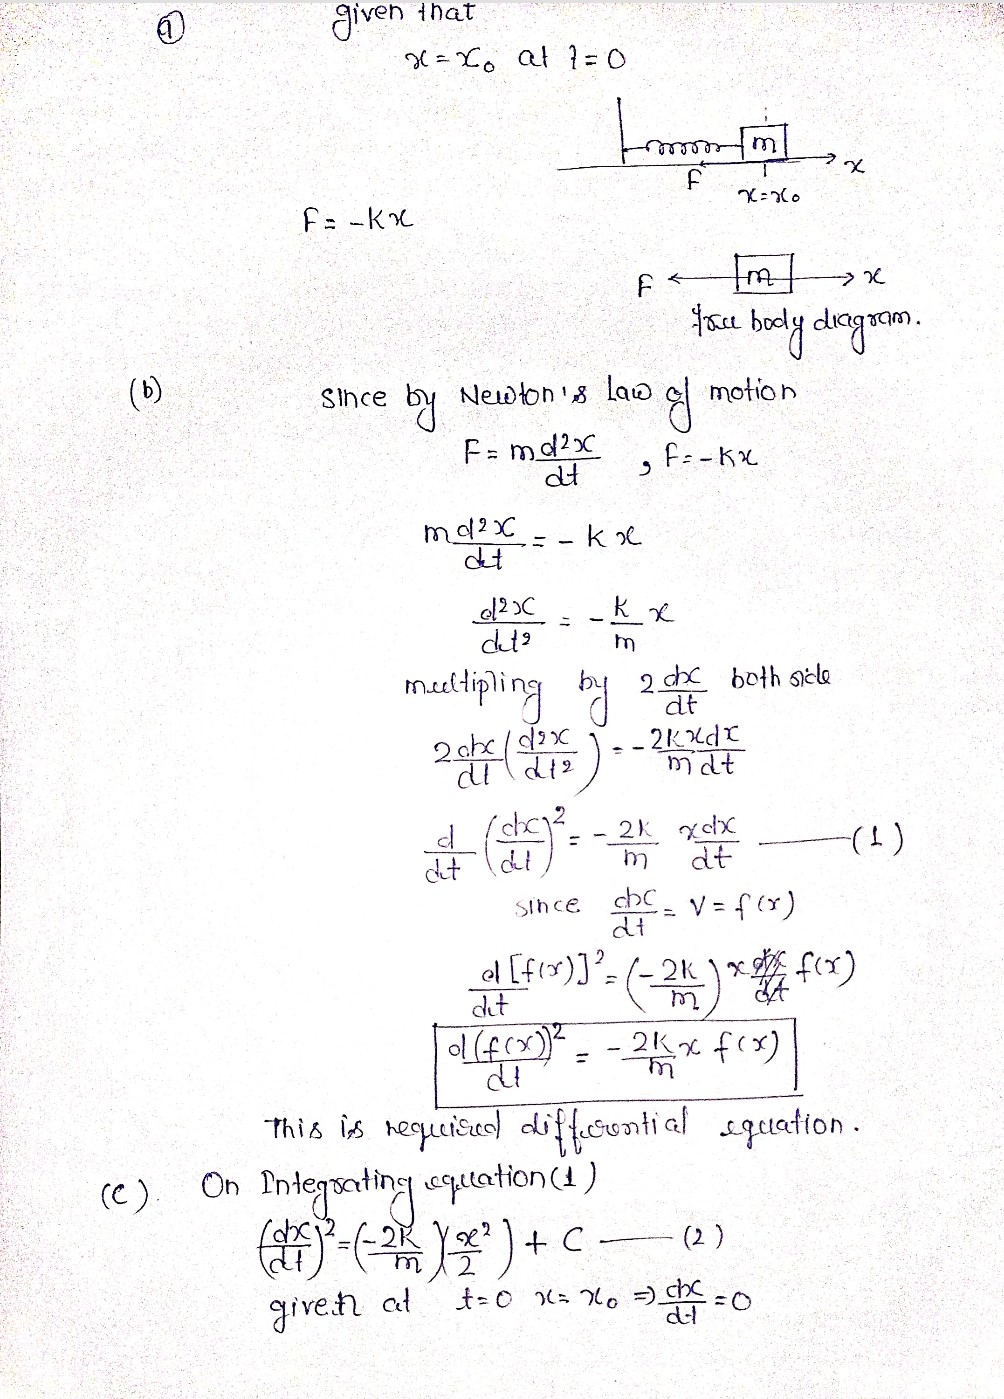 (a) given that
x = x₀ at t = 0
m
F
x
x = x₀
F = -Kx
F ← m → x
free body diagram.
(b) Since by Newton's Law of motion
F = m d2x/dt , F = -Kx
m d2x/dt = - k x
d2x/dt2 = - k/m x
multipling by 2 dx/dt both side
2 dx/dt (d2x/dt2) = - 2Kxdx/mdt
d/dt (dx/dt)² = - 2k/m xdx/dt —— (1)
since dx/dt = V = f(x)
d/dt [f(x)]² = (- 2K/m) x f(x)
d(f(x))²/dt = - 2K/m x f(x)
This is required differential equation.
(c). On Integrating equation (1)
(dx/dt)² = (-2K/m)(x²/2) + C —— (2)
given at t=0 x = x₀ ⇒ dx/dt = 0